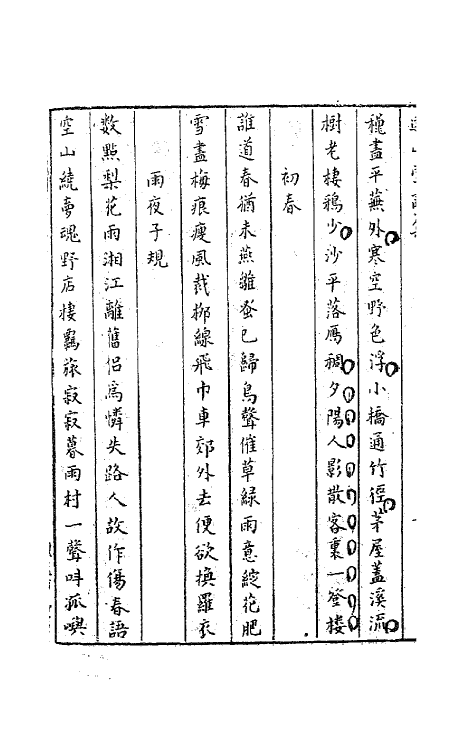 穫盡平蕪外寒空野色浮小橋通竹徑茅屋蓋溪流
樹老棲鴉少沙平落鴈稠夕陽人影散客裏一登樓
初春
誰道春猶未燕雛蚤已歸鳥聲催草綠雨意綻花肥
雪盡梅痕瘦風裁柳線飛巾車郊外去便欲換羅衣
雨夜子規
數點梨花雨湘江離舊侶爲憐失路人故作傷春語
空山繞夢魂野店棲羈旅寂寂暮雨村一聲呌孤嶼